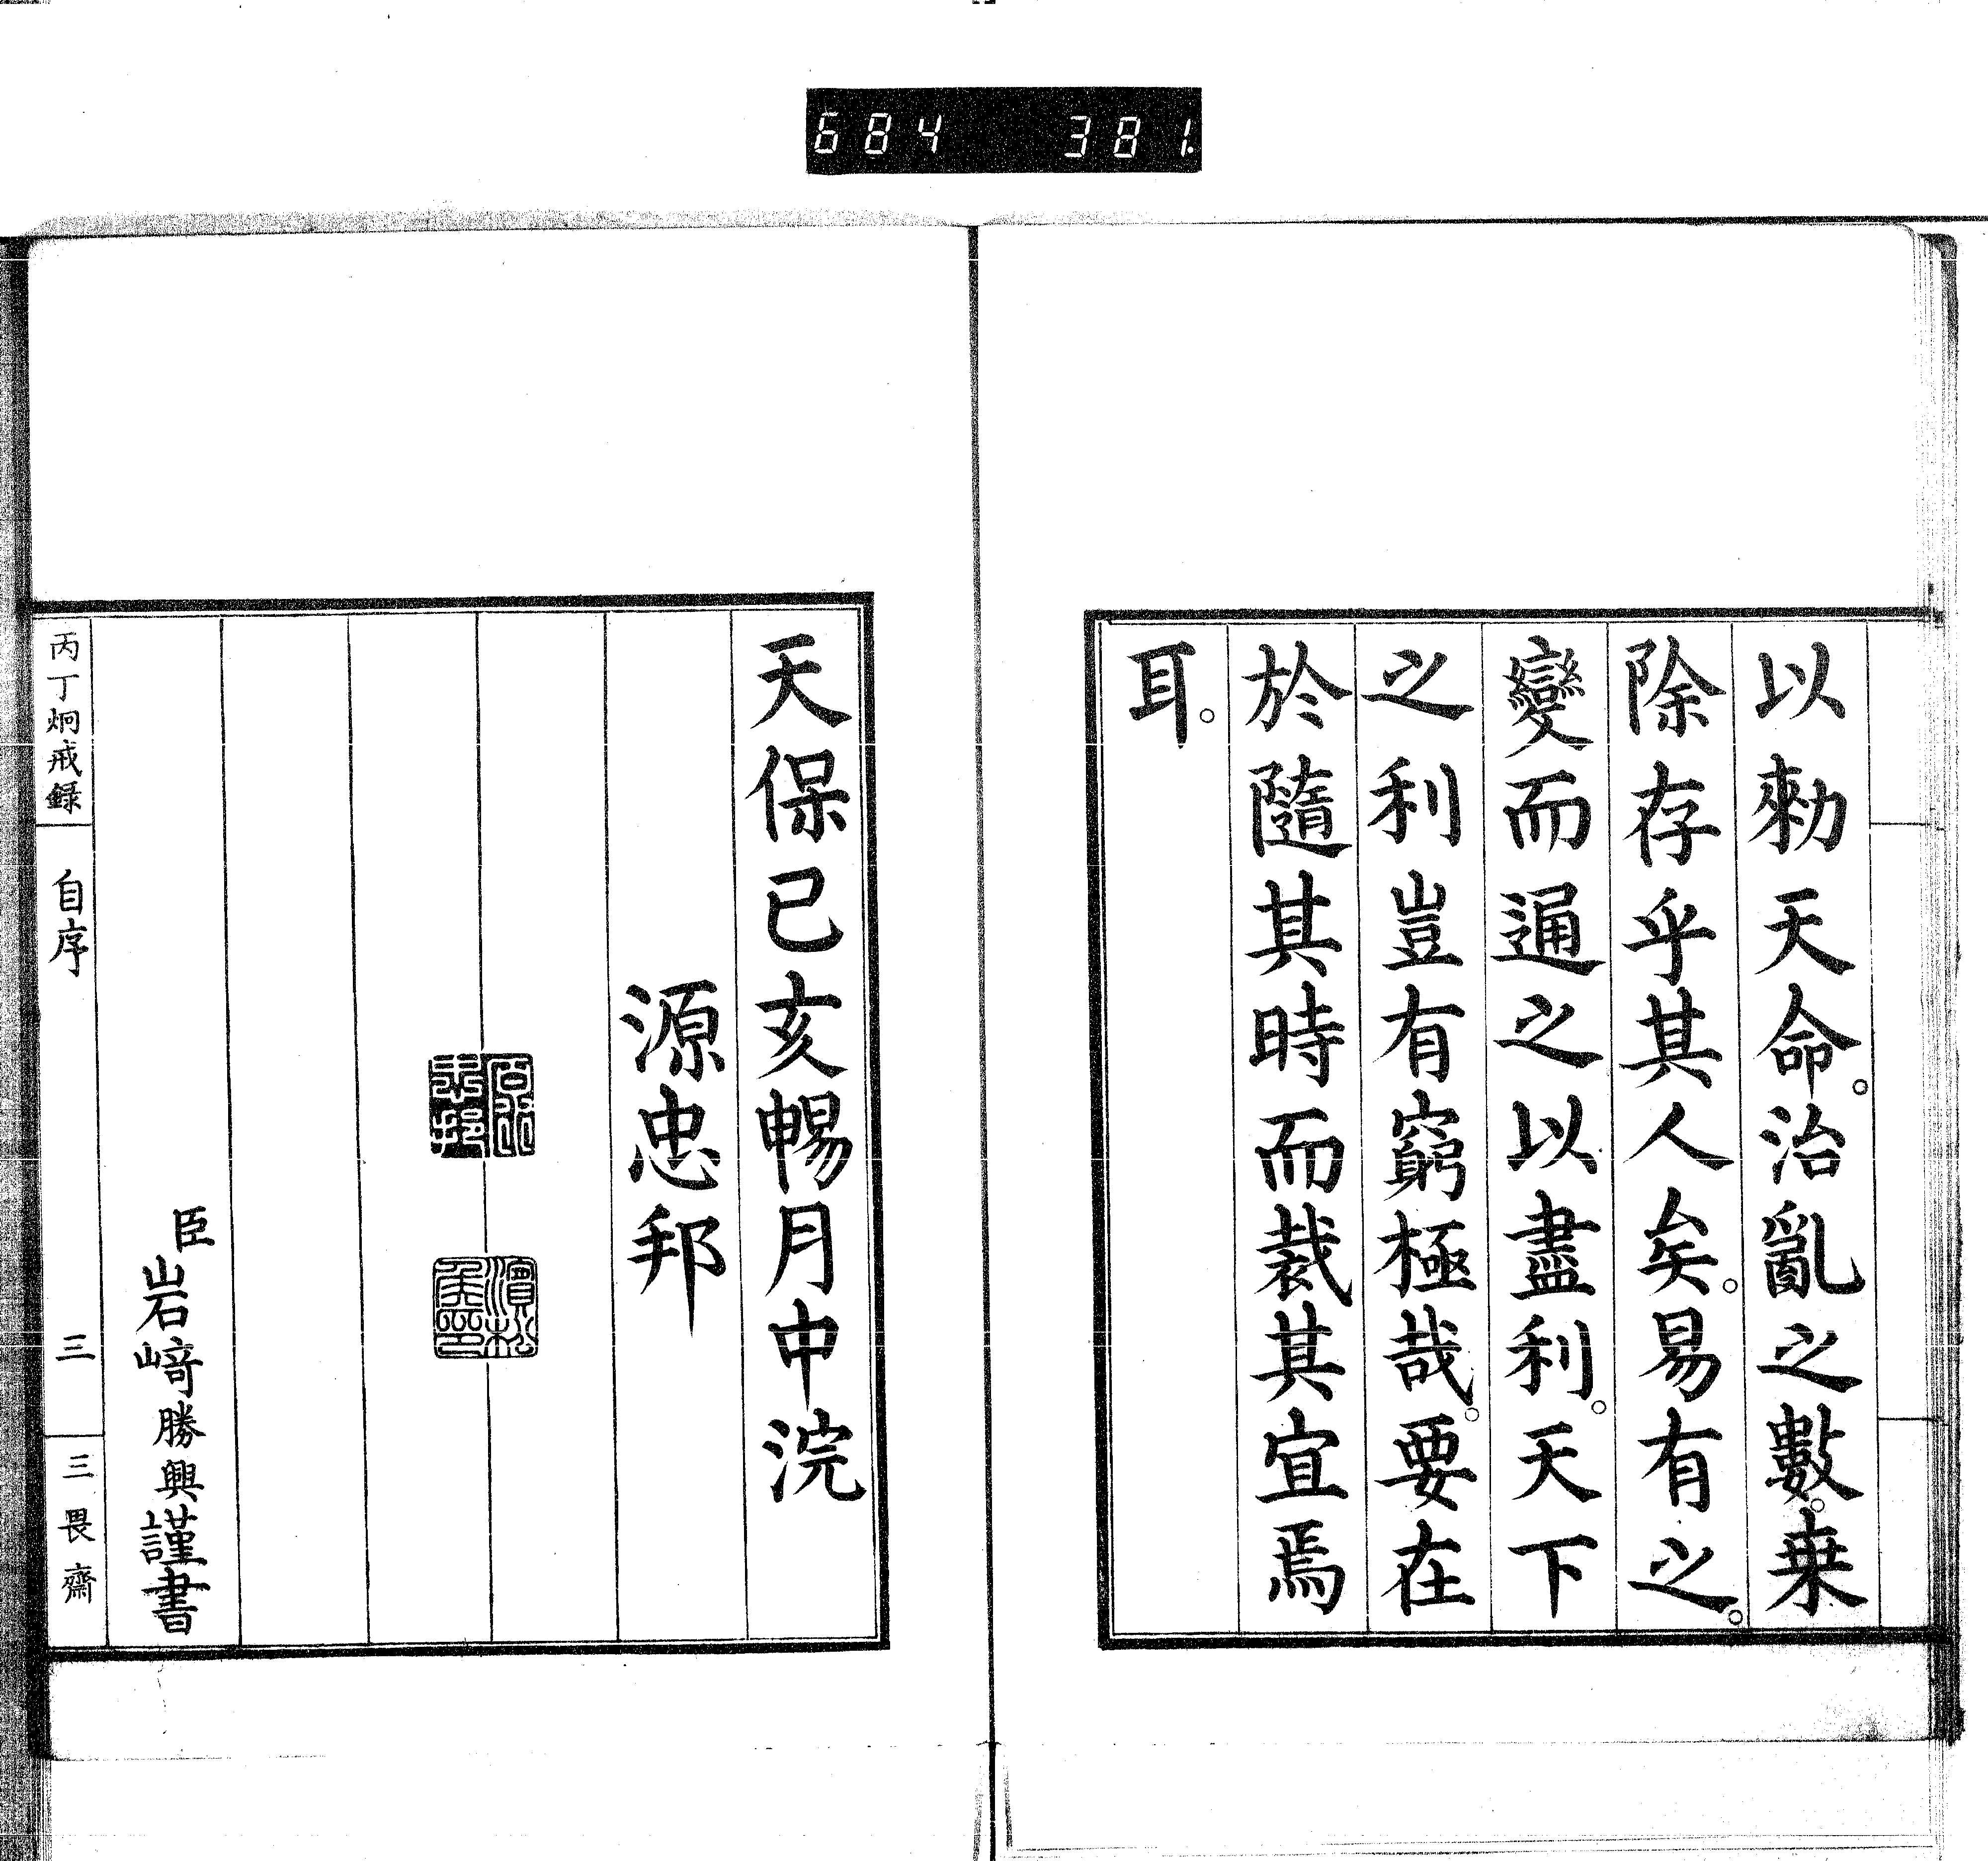 684 381
以勑天命。治亂之數。乗
除存乎其人矣。易有之。
變而通之以盡利。天下
之利豈有窮極哉。要在
於隨其時而裁其宜焉
耳。
天保己亥暢月中浣
源忠邦
源忠邦
濵松侯印
臣岩﨑勝興謹書
丙丁炯戒録 自序 三 三畏齋